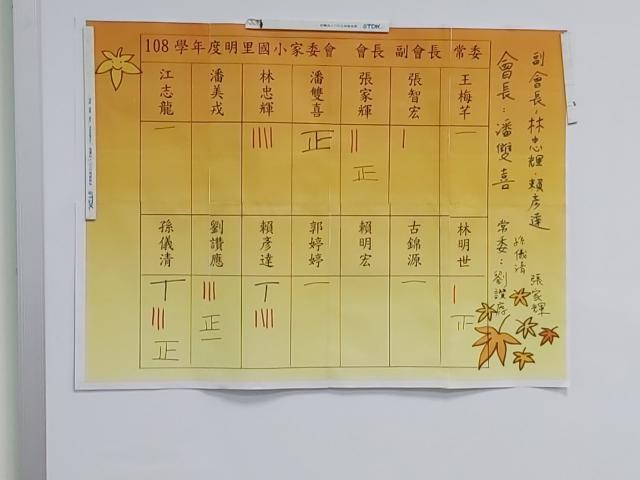 108 學年度明里國小家委會 會長 副會長 常委
江志龍 潘美戎 林忠輝 潘雙喜 張家輝 張智宏 王梅芊
一 正 正 一
孫儀清 劉讚應 賴彥達 郭婷婷 賴明宏 古錦源 林明世
丅 丅 一 一
正 正 一 正
副會長:林忠輝.賴彥達
會長:潘雙喜
常委:劉讚應
孫儀清
張家輝
TDK
TDK